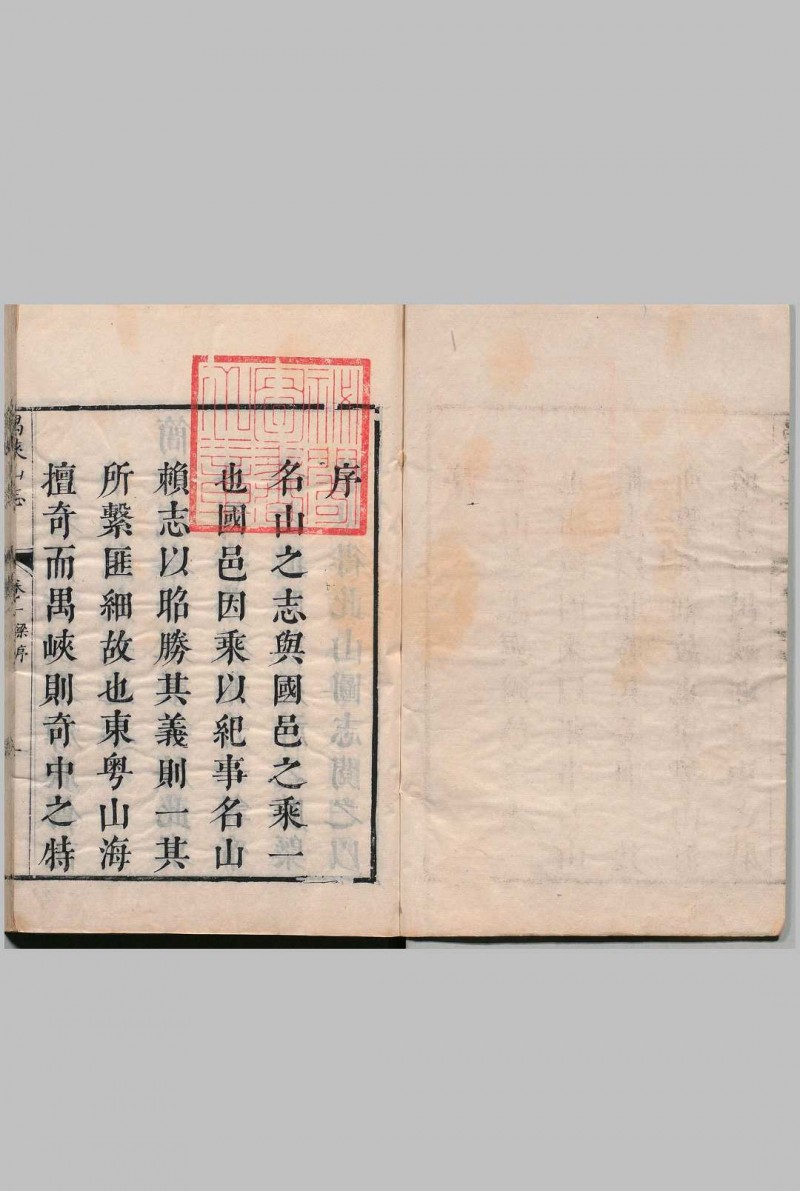 序
名山之志與國邑之乘一
也國邑因乘以紀事名山
賴志以昭勝其義則一其
所繫匪細故也東粤山海
擅奇而禺峽則奇中之特
禺峽山志
梁序
一